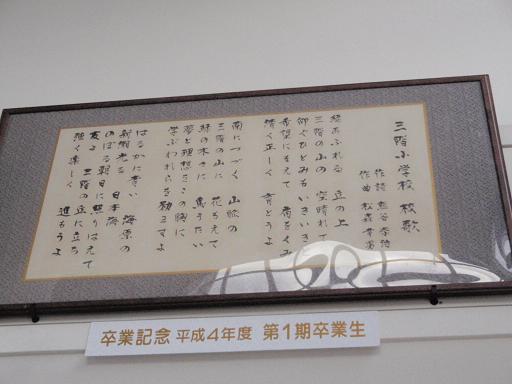 三階小学校 校歌
作詞
作曲
緑あふれる 丘の上
三階の山の 空晴れて
仰ぐひとみも いきいきと
希望にもえて 肩をくみ
清く正しく 育とうよ
南につづく 山脈の
三階の山に 花もえて
緑の木々に 鳥うたい
夢と理想をこの胸に
学ぶわれらを 励ますよ
はるかに青い 海原の
新潮光る 日本海
のぼる朝日に 照りはえて
友よ 三階の丘に立ち
強く楽しく 進もうよ
卒業記念 平成4年度 第1期卒業生